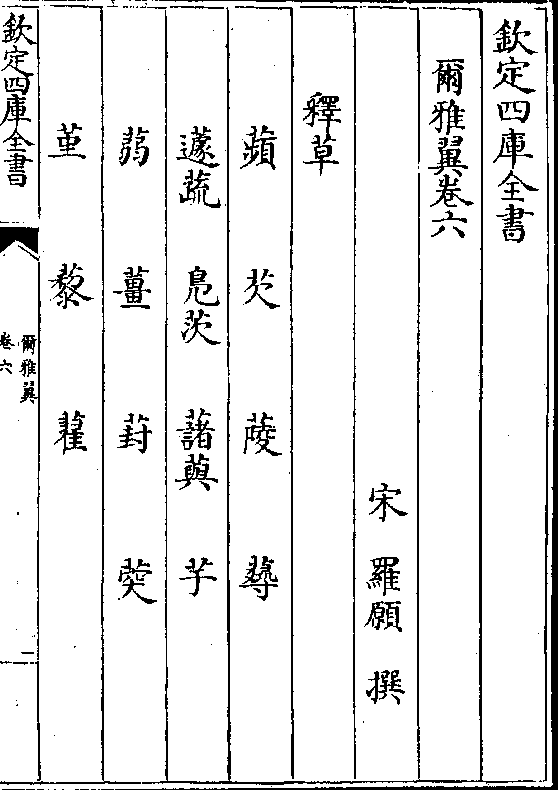 欽定四庫全書
爾雅翼卷六
宋 羅願 撰
釋草
蘋 芡 䔖 蕁
蘧蔬 鳧茨 藷藇 芋
蒻 薑 葑 葖
菫 藜 藋
欽定四庫全書
爾雅翼
卷六
一